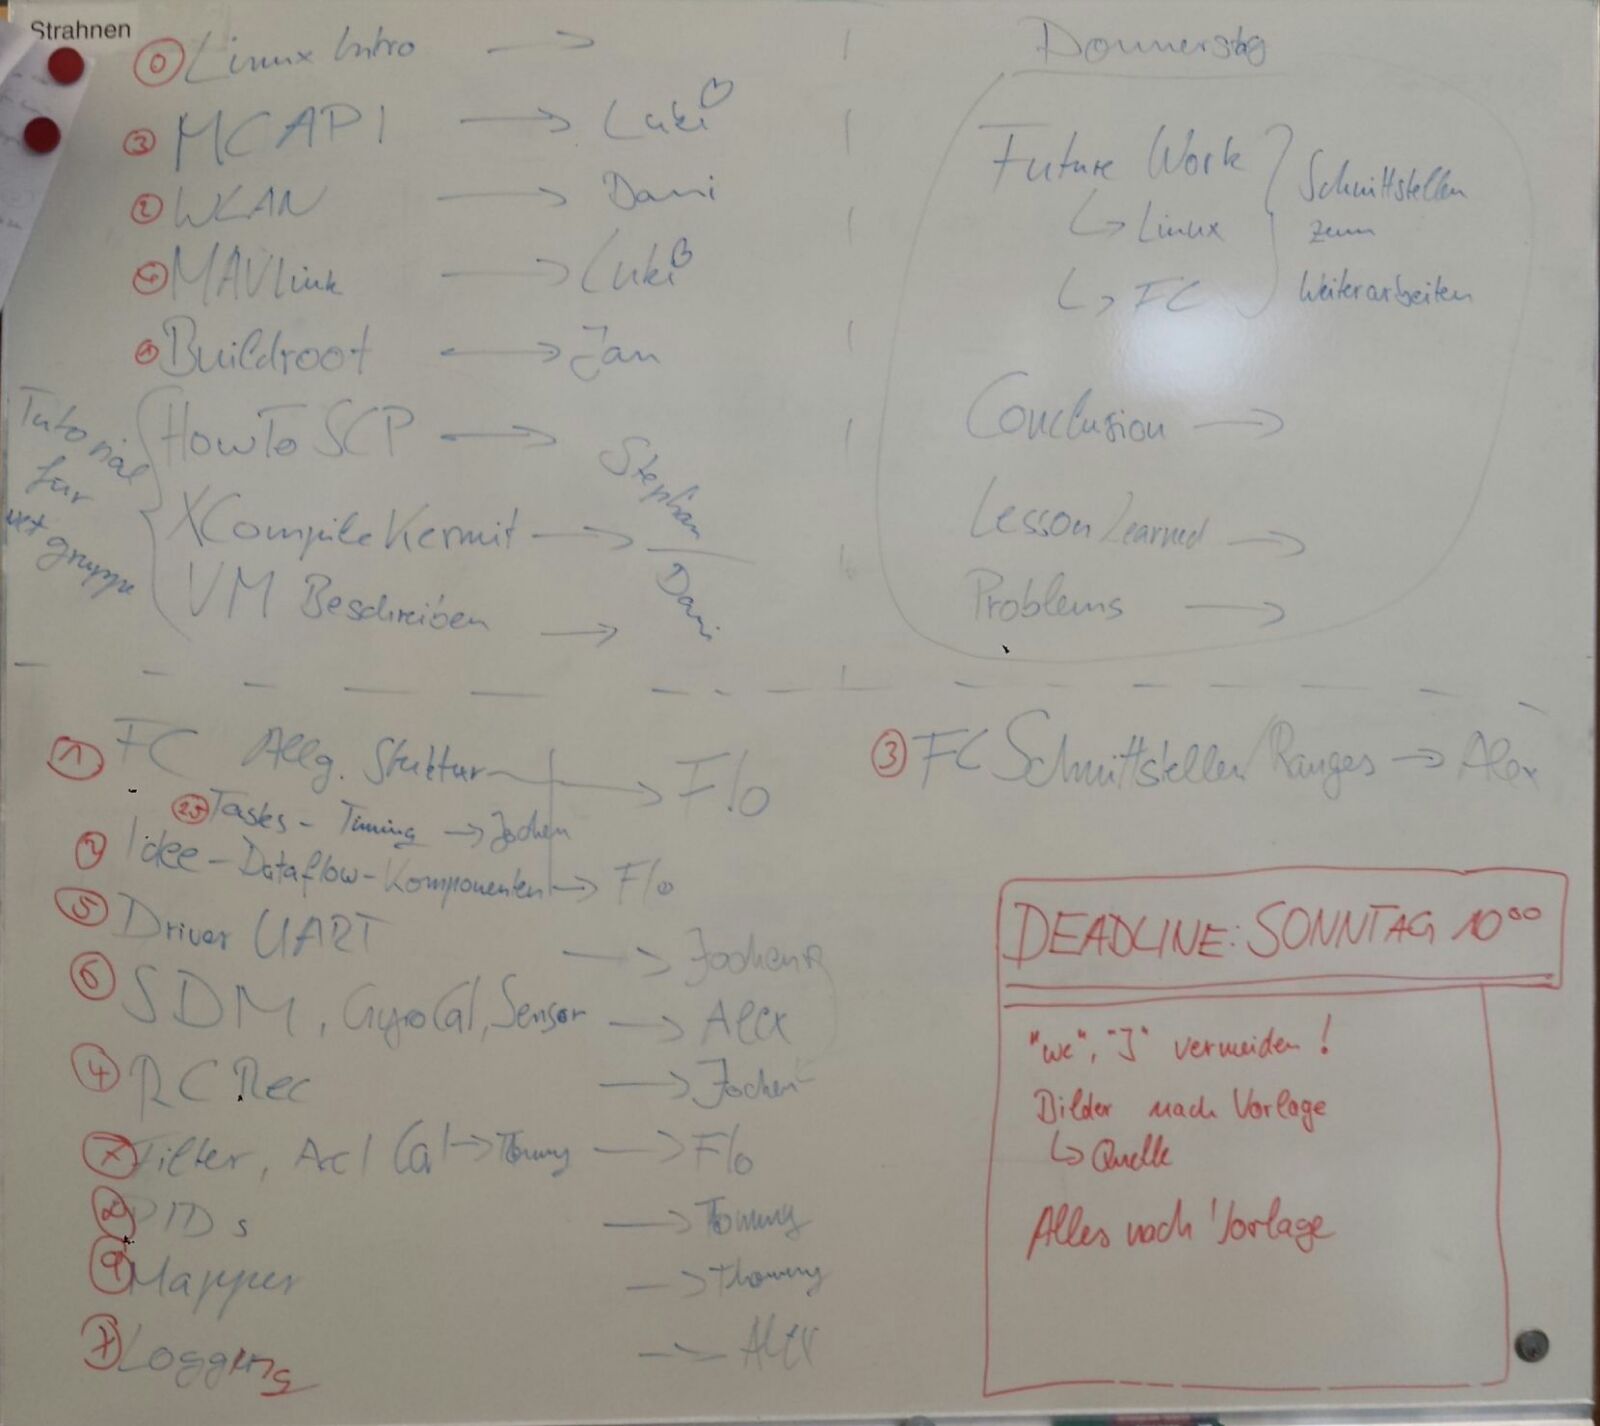 Strahnen
0 Linux Intro →
3 MCAPI → Luki
2 WLAN → Dani
4 MAVLink → Luki
1 Buildroot → Jan
Tutorial
für
gruppe
HowTo SCP →
XCompile Kermit →
VM Beschreiben →
Stephan
Dani
Donnerstag
Future Work
↳ Linux
↳ FC
Schnittstellen
zum
Weiterarbeiten
Conclusion →
Lesson Learned →
Problems →
1 FC Allg. Struktur → Flo
2.5 Tasks - Timing → Jochen
2 Idee - Dataflow - Komponenten → Flo
5 Driver UART → Jochen
6 SDM, GyroCal, Sensor → Alex
4 RC Rec → Jochen
7 Filter, Acc Cal → Tommy → Flo
8 PIDs → Tommy
9 Mapper → Thommy
Logging → Alex
3 FC Schnittstellen/Ranges → Alex
DEADLINE: SONNTAG 10⁰⁰
"we", "I" vermeiden!
Bilder nach Vorlage
↳ Quelle
Alles nach Vorlage